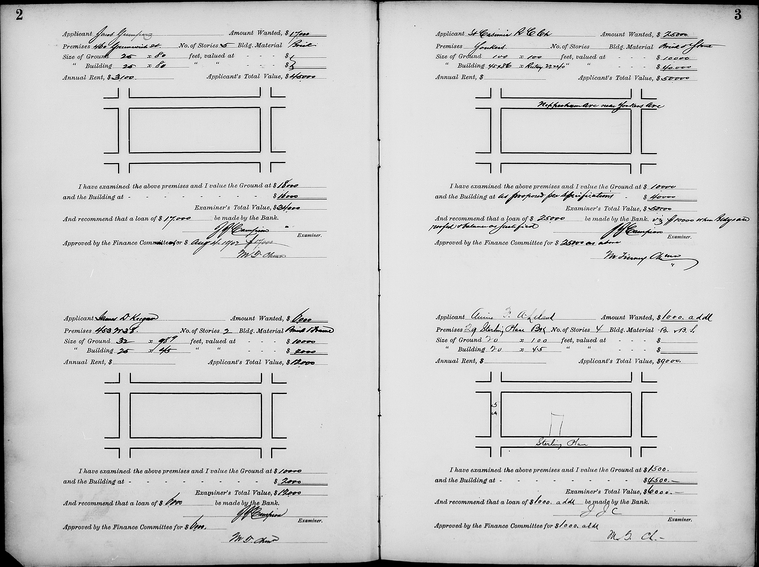 2
Applicant Amount Wanted, $ 17000
Premises 450 Greenwich St No. of Stories 5 Bldg. Material Brick
Size of Ground 25 x 80 feet, valued at - - - $
" Building 25 x 80 " " - - - $
Annual Rent, $ 3100 Applicant's Total Value, $ 45000
I have examined the above premises and I value the Ground at $ 18000
and the Building at - - - - - - - - $ 16000
Examiner's Total Value, $ 34000
And recommend that a loan of $ 17,000 be made by the Bank.
Examiner.
Approved by the Finance Committee for $
Applicant James D. Amount Wanted, $ 6000
Premises 453 W 38 No. of Stories 2 Bldg. Material Brick & Frame
Size of Ground 32 x 98 9 feet, valued at - - - $ 10000
" Building 25 x 45 " " - - - $ 2000
Annual Rent, $ Applicant's Total Value, $ 12000
I have examined the above premises and I value the Ground at $ 10000
and the Building at - - - - - - - - $ 2000
Examiner's Total Value, $ 12000
And recommend that a loan of $ 6000 be made by the Bank.
Examiner.
Approved by the Finance Committee for $ 6000.
3
Applicant St Casimir R. C. Ch Amount Wanted, $ 25000
Premises Yonkers No. of Stories Bldg. Material Brick & Stone
Size of Ground 100 x 100 feet, valued at - - - $ 10000
" Building 40 x 86 x - - - $ 40000
Annual Rent, $ Applicant's Total Value, $ 50000
Nepperhan Ave near Yonkers Ave
I have examined the above premises and I value the Ground at $ 10000
and the Building at as proposed per specifications - $ 40000
Examiner's Total Value, $ 50000
And recommend that a loan of $ 25000 be made by the Bank. viz $ 10000 when Bldgs are
roofed & balance as justified
Examiner.
Approved by the Finance Committee for $ 25000 as above
Applicant Annie Amount Wanted, $ 1000. addl
Premises Sterling Place Bkn No. of Stories 4 Bldg. Material
Size of Ground 20 x 100 feet, valued at - - - $
" Building 20 x 45 " " - - - $
Annual Rent, $ Applicant's Total Value, $ 9000.
Sterling Place
I have examined the above premises and I value the Ground at $ 1500.
and the Building at - - - - - - - - $ 4500.—
Examiner's Total Value, $ 6000.—
And recommend that a loan of $ 1000. addl be made by the Bank.
J. J. C
Examiner.
Approved by the Finance Committee for $ 1000. addl